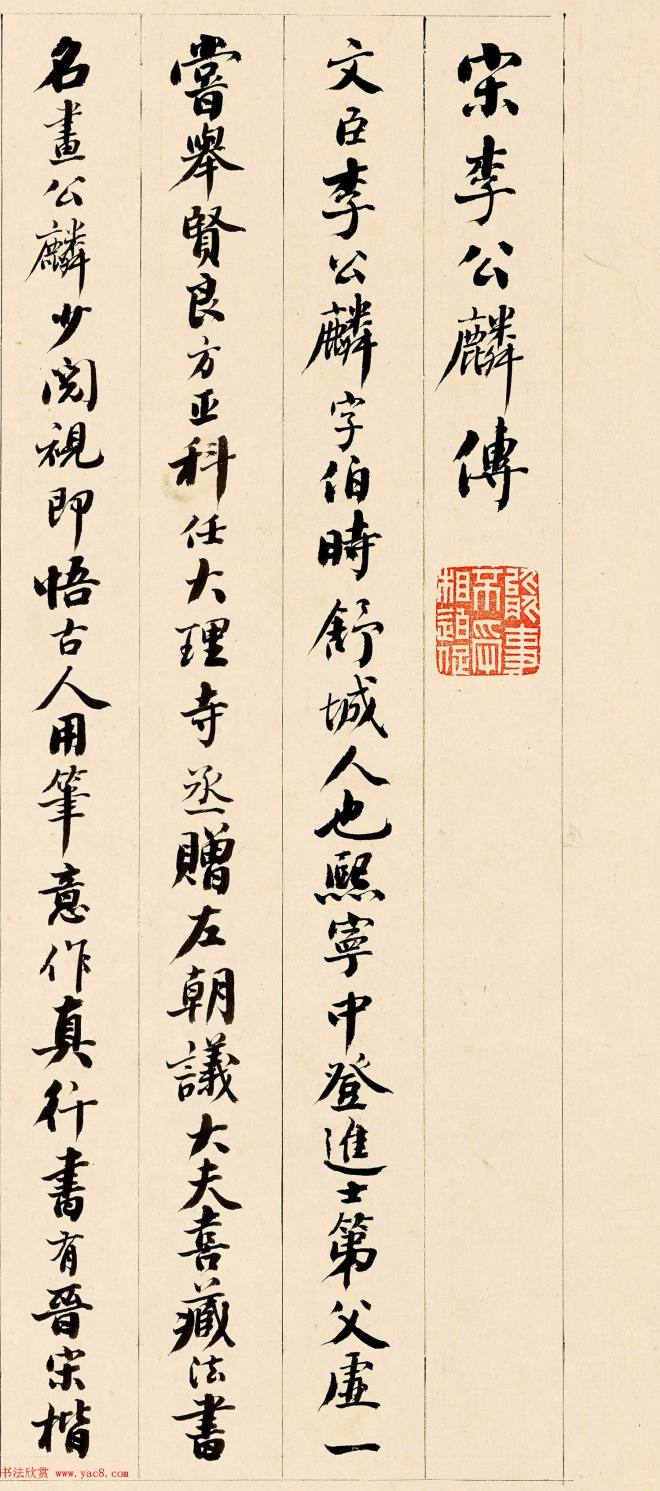 宋李公麟傳
文臣李公麟字伯時舒城人也熙寧中登進士第父虛一
嘗舉賢良方正科任大理寺丞贈左朝議大夫喜藏法書
名畫公麟少閱視即悟古人用筆意作真行書有晉宋楷
书法欣赏 www.yac8.com